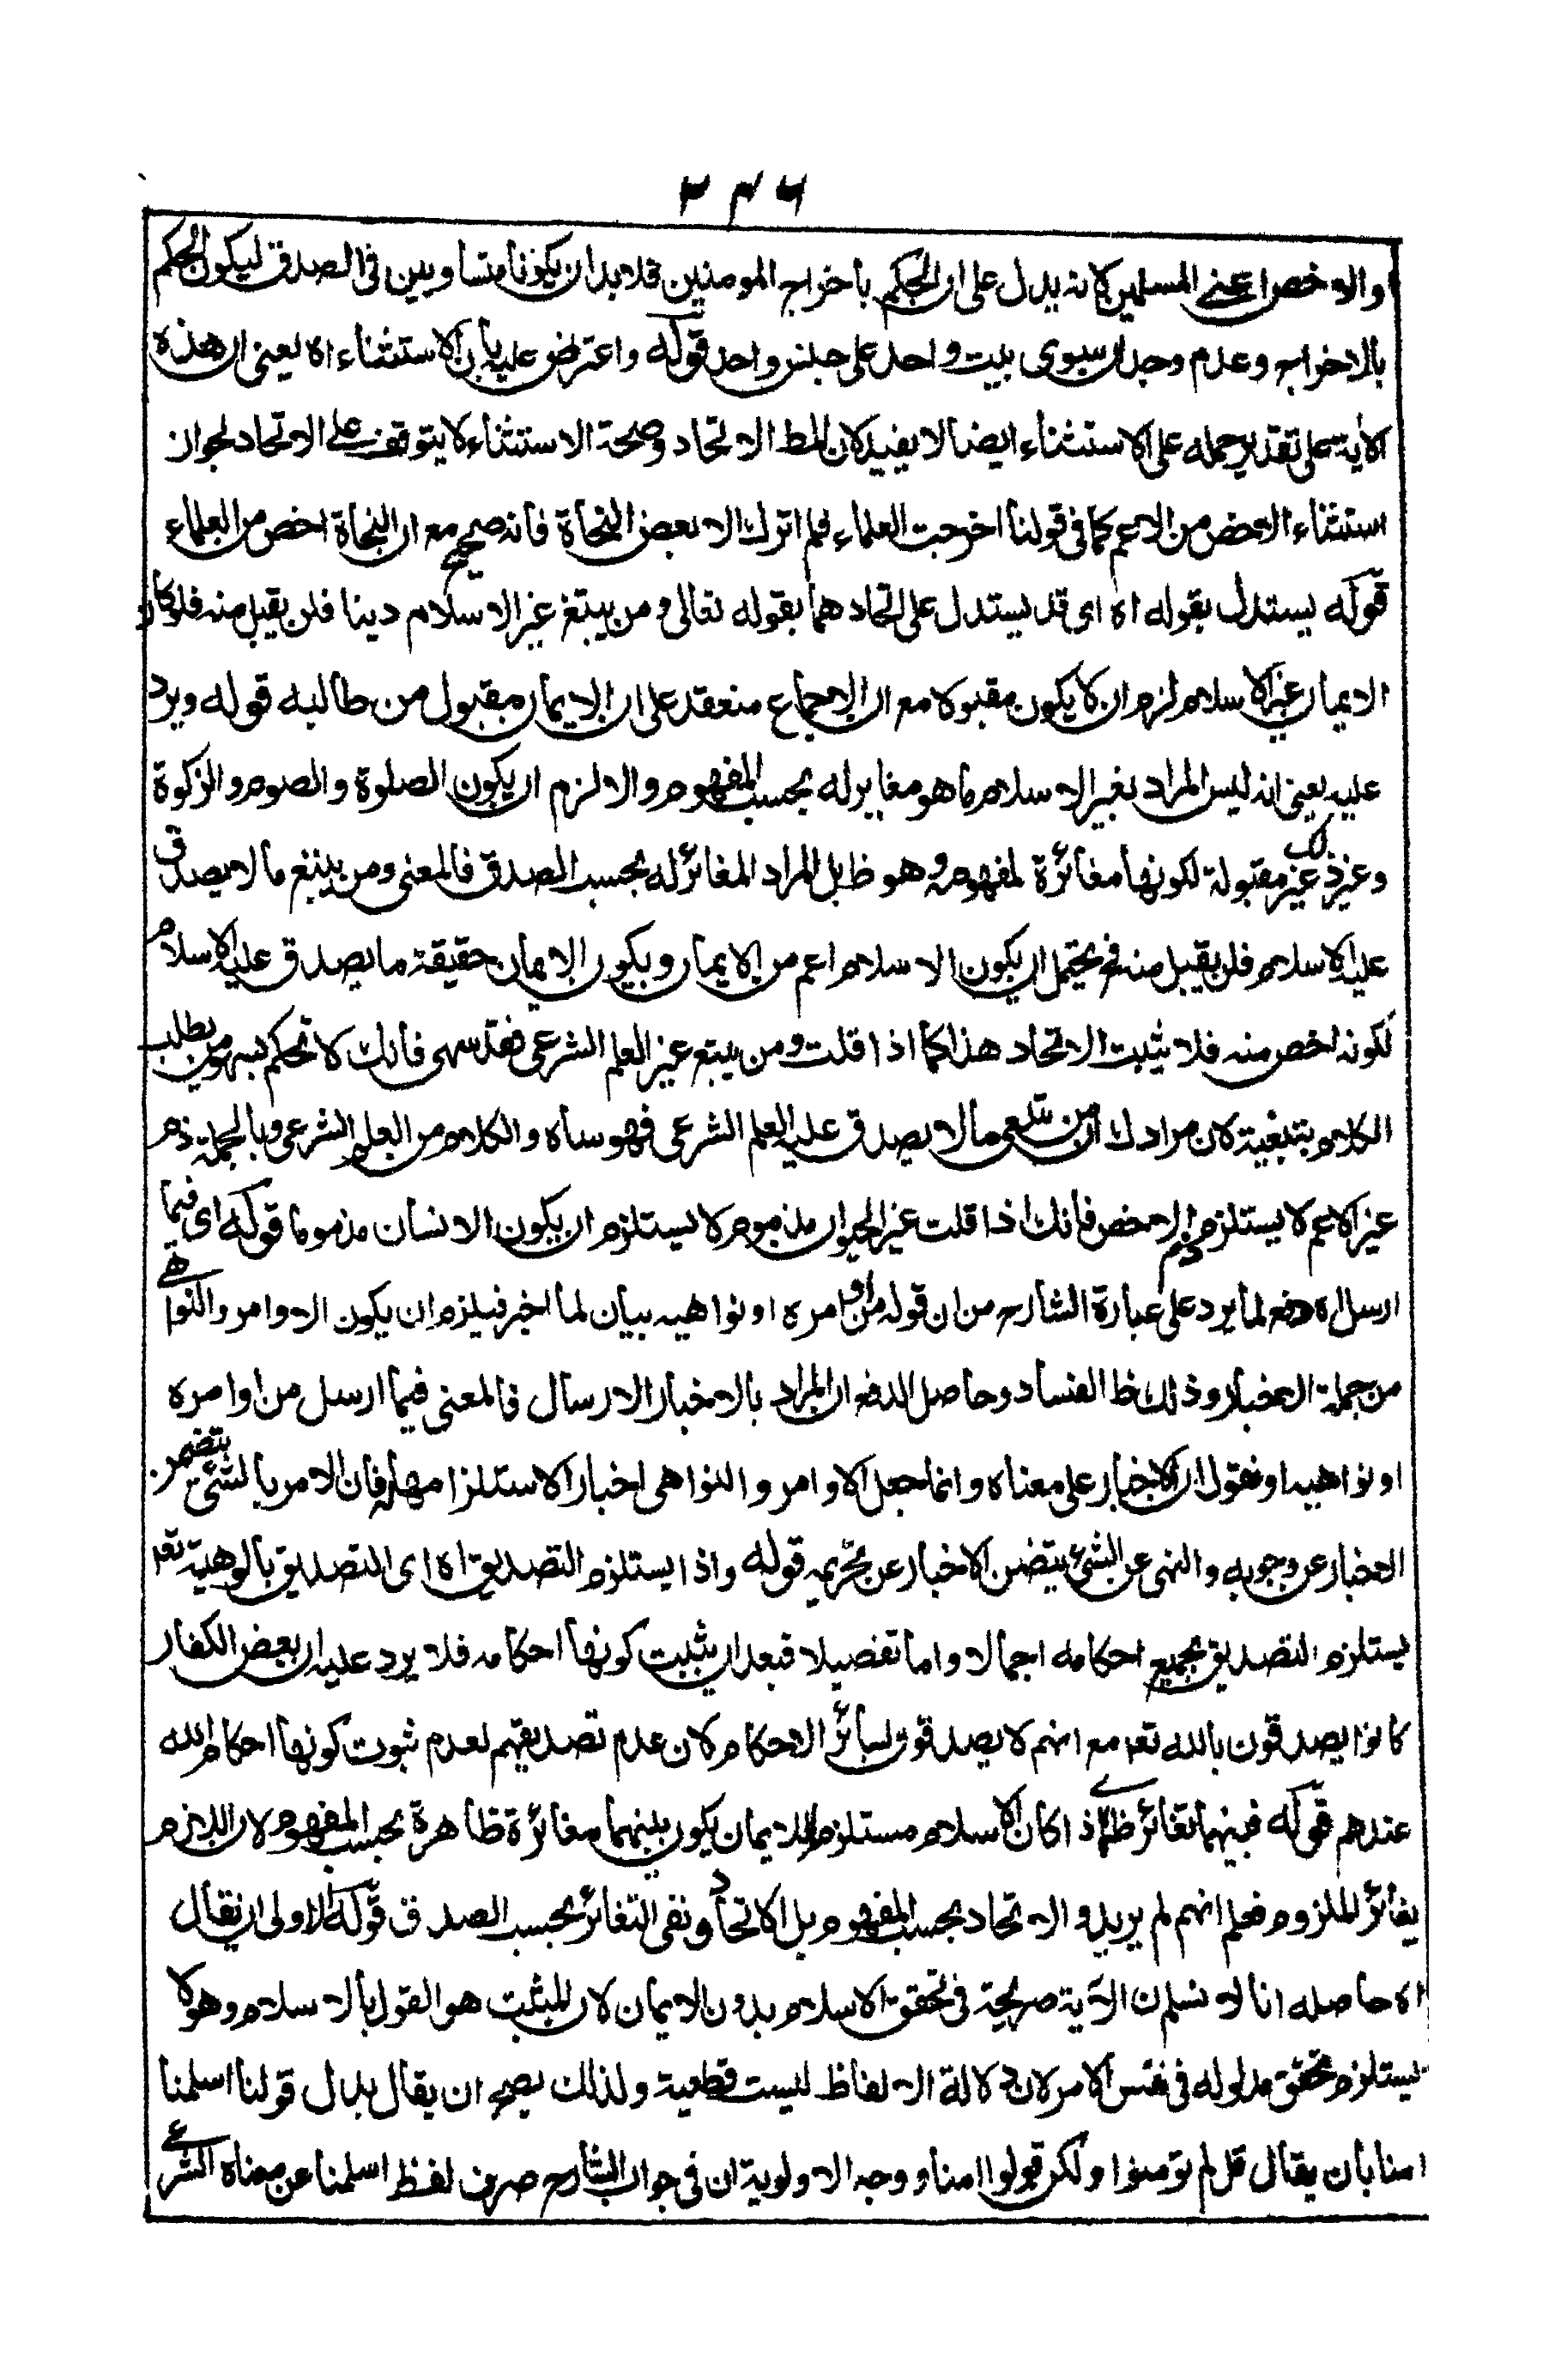 ۲۴۶
والاخص اعنى المسلمين لانه يدل على ان الحكم باخراج المومنين فلا بد ان يكونا متساويين فى الصدق ليكون الحكم
بالاخراج وعدم وجدان سوى بيت واحد على جنس واحد قوله واعترض عليه بان الاستثناء اه يعنى ان هذه
الآية على تقدير حمله على الاستثناء ايضا لا يفيد لان المط الاتحاد وصحة الاستثناء لا يتوقف على الاتحاد لجواز
استثناء الاخص من الاعم كما فى قولنا اخرجت العلماء فلم اترك الا بعض النحاة فانه صحيح مع ان النحاة اخص من العلماء
قوله يستدل بقوله اه اى قد يستدل على اتحادهما بقوله تعالى ومن يبتغ غير الاسلام دينا فلن يقبل منه فلو كان
الايمان غير الاسلام لزم ان لا يكون مقبولا مع ان الاجماع منعقد على ان الايمان مقبول من طالبه قوله ويرد
عليه يعنى انه ليس المراد بغير الاسلام ما هو مغاير له بحسب المفهوم والا لزم ان يكون الصلوة والصوم والزكوة
وغير ذلك غير مقبولة لكونها مغائرة لمفهومه وهو ظ بل المراد المغائر له بحسب الصدق فالمعنى ومن يبتغ ما لا يصدق
عليه الاسلام فلن يقبل منه فح يحتمل ان يكون الاسلام اعم من الايمان ويكون الايمان حقيقة ما يصدق عليه الاسلام
لكونه اخص منه فلا يثبت الاتحاد هذا كما اذا قلت ومن يبتغ غير العلم الشرعى فقد سهى فانك لا تحكم بسهو من يطلب
الكلام بتبغية لان مرادك ان من يبتغى ما لا يصدق عليه العلم الشرعى فهو ساه والكلام من العلم الشرعى وبالجملة ذم
غير الاعم لا يستلزم ذم الاخص فانك اذا قلت غير الحيوان مذموم لا يستلزم ان يكون الانسان مذموما قوله اى فيما
ارسل اه دفع لما يرد على عبارة الشارح من ان قوله من اوامره او نواهيه بيان لما اخبر فيلزم ان يكون الاوامر والنواهى
من جملة الاخبار وذلك ظ الفساد وحاصل الدفع ان المراد بالاخبار الارسال فالمعنى فيما ارسل من اوامره
او نواهيه او نقول ان الاخبار على معناه وانما جعل الاوامر والنواهى اخبارا لاستلزامها له فان الامر بالشئ يتضمن
الاخبار عن وجوبه والنهى عن الشئ يتضمن الاخبار عن تحريمه قوله واذا يستلزم التصديق اه اى التصديق بالوهية تعه
يستلزم التصديق بجميع احكامه اجمالا واما تفصيلا فبعد ان يثبت كونها احكامه فلا يرد عليه ان بعض الكفار
كانوا يصدقون بالله تعه مع انهم لا يصدقون بسائر الاحكام لان عدم تصديقهم لعدم ثبوت كونها احكام الله
عندهم قوله فبينهما تغائر ظاهر اذا كان الاسلام مستلزما للايمان يكون بينهما مغائرة ظاهرة بحسب المفهوم لان اللازم
يغائر الملزوم فعلم انهم لم يريدوا الاتحاد بحسب المفهوم بل الاتحاد ونفى التغائر بحسب الصدق قوله الاولى ان يقال
اه حاصله انا لا نسلم ان الآية صريحة فى تحقق الاسلام بدون الايمان لان المثبت هو القول بالاسلام وهو لا
يستلزم تحقق مدلوله فى نفس الامر لان دلالة الالفاظ ليست قطعية ولذلك يصح ان يقال بدل قولنا اسلمنا
امنا بان يقال قل لم تومنوا ولكن قولوا امنا ووجه الاولوية ان فى جواب الشارح صرف لفظ اسلمنا عن معناه الشرعى